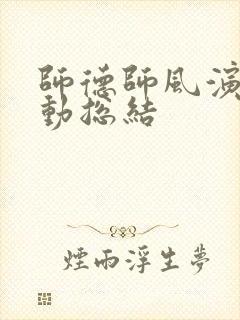 師德師風演
動總結
煙雨浮生夢